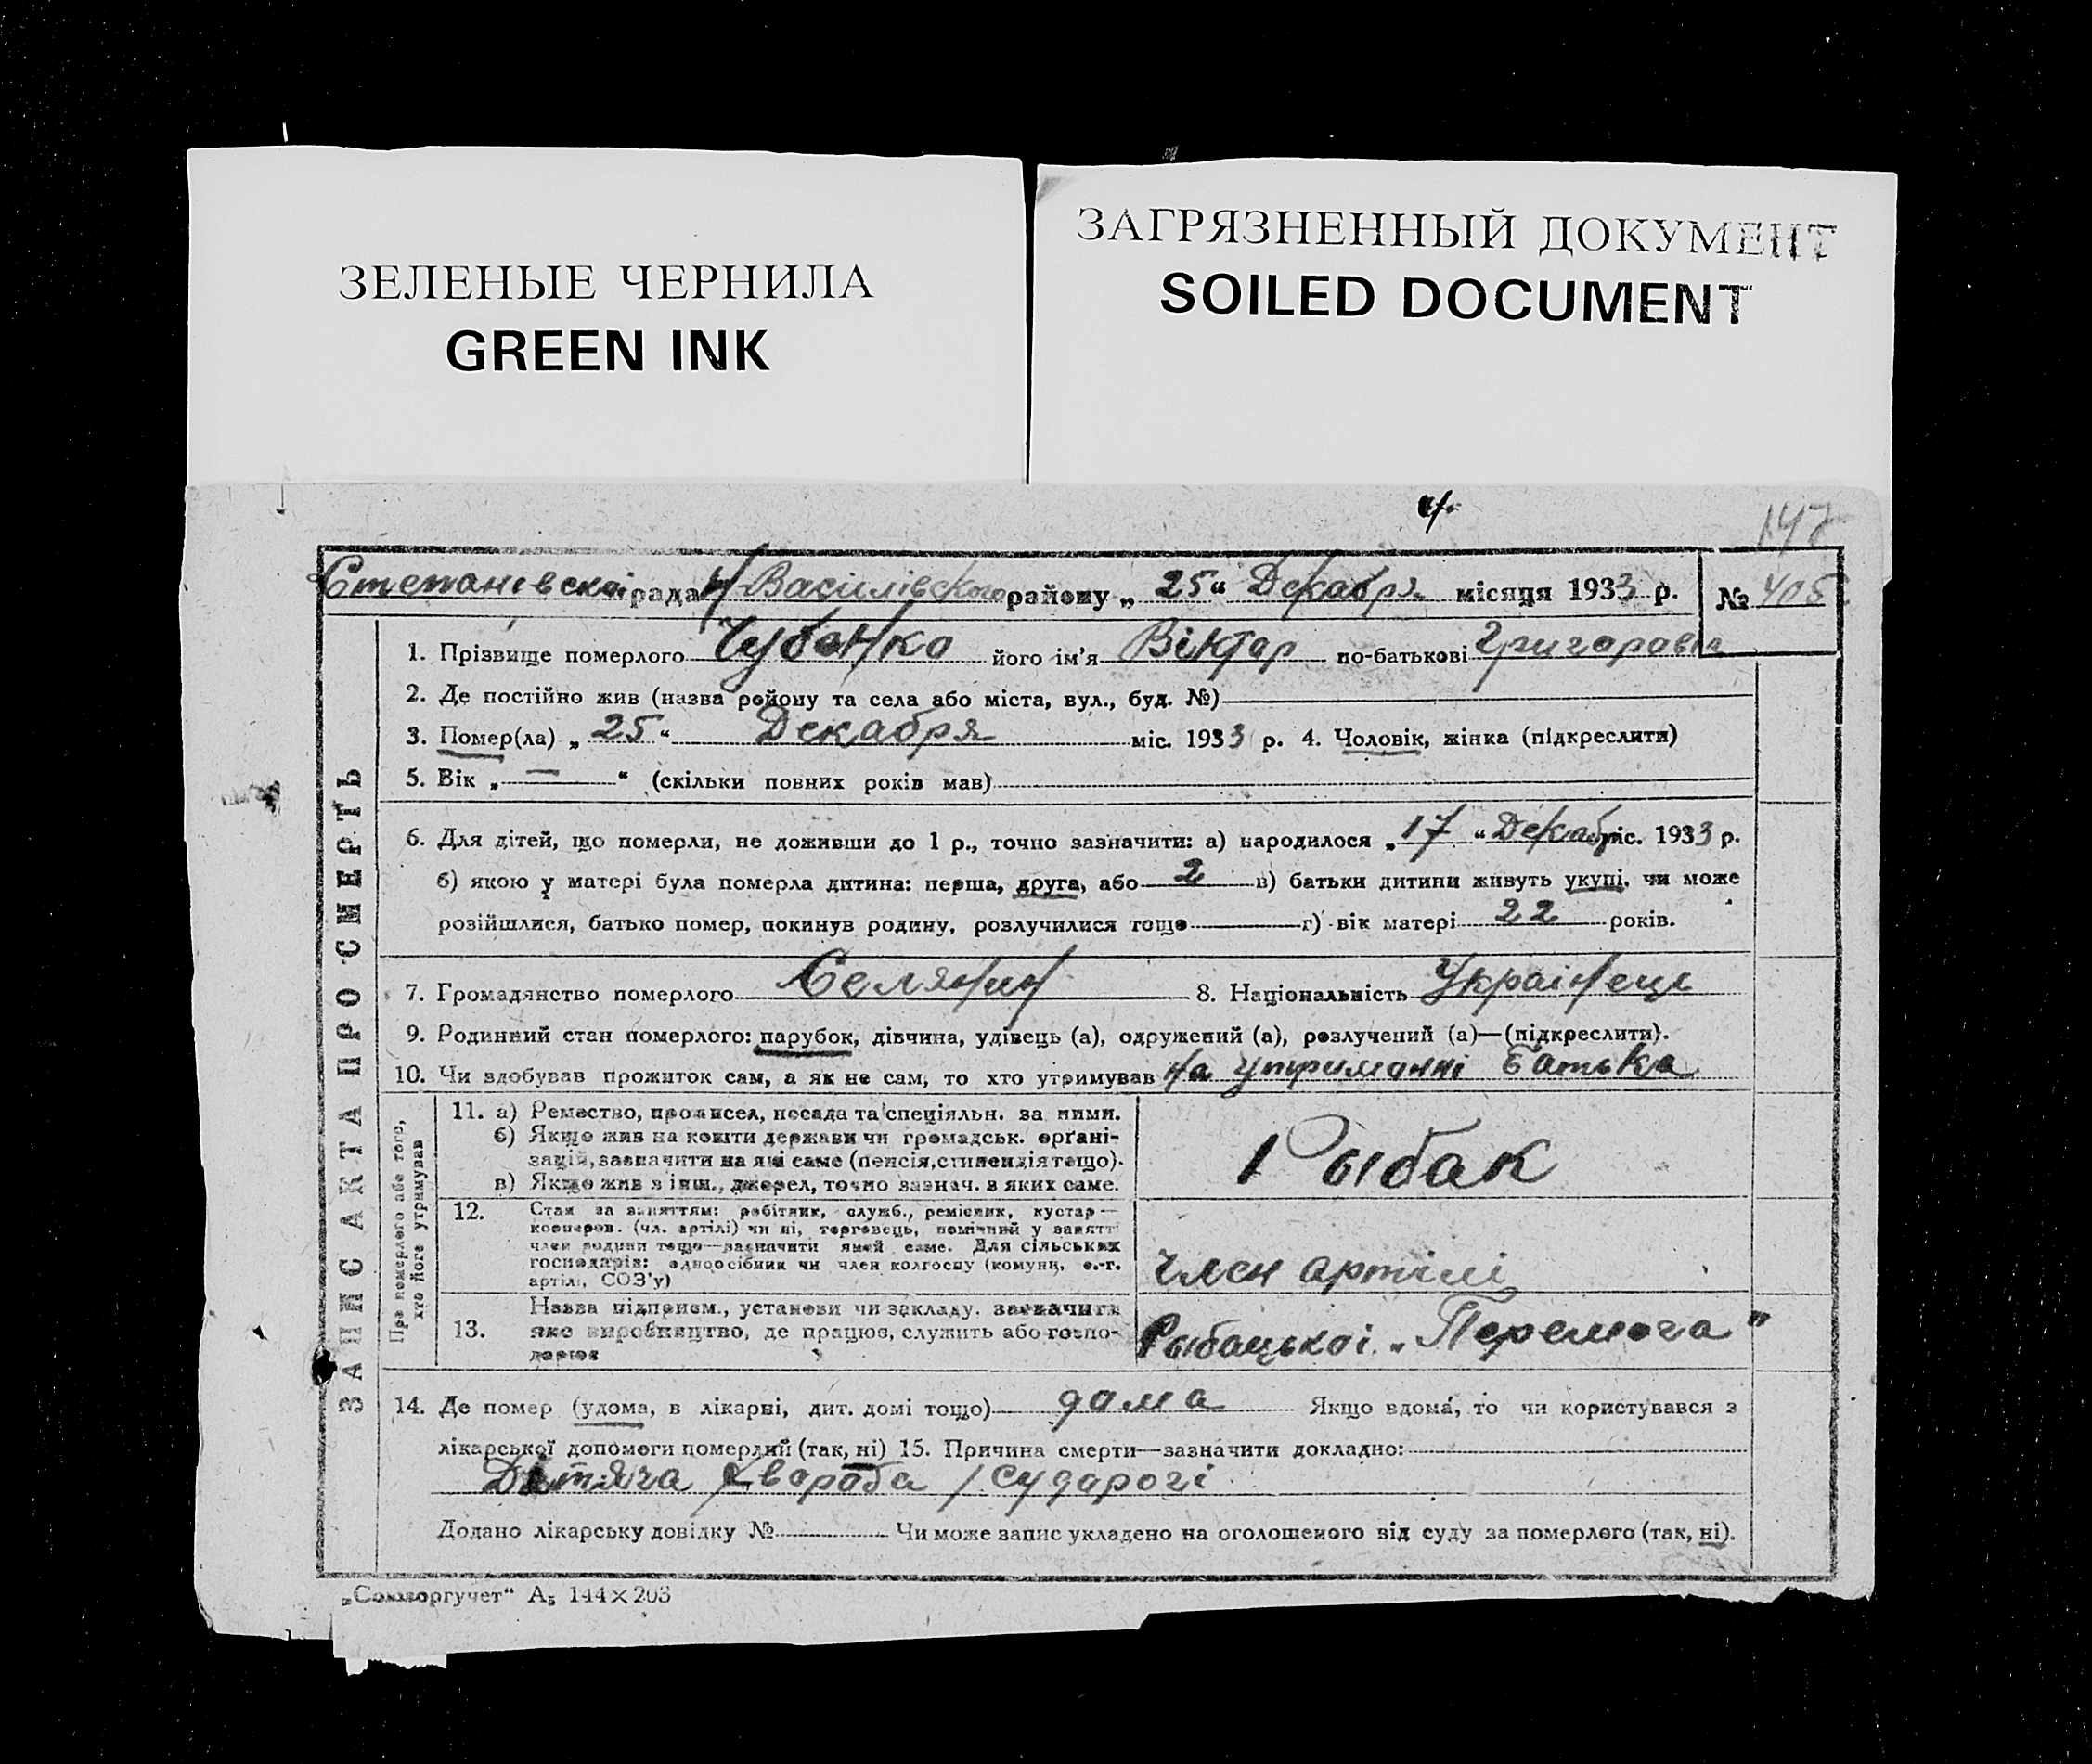 ЗЕЛЕНЫЕ ЧЕРНИЛА
GREEN INK
ЗАГРЯЗНЕННЫЙ ДОКУМЕНТ
SOILED DOCUMENT
147
Степанівскоі рада Н/Василівского району „25“ Декабря місяця 1933 р. № 405
ЗАПИС АКТА ПРО СМЕРТЬ
1. Прізвище померлого Чубенко його ім'я Віктор по-батькові Григоравіч
2. Де постійно жив (назва району та села або міста, вул., буд. №)
3. Помер(ла) „25“ Декабря міс. 1933 р. 4. Чоловік, жінка (підкреслити)
5. Вік „—“ (скільки повних років мав)
6. Для дітей, що померли, не доживши до 1 р., точно зазначити: а) народилося „17“ Декабр міс. 1933 р.
б) якою у матері була померла дитина: перша, друга, або 2 в) батьки дитини живуть укупі, чи може
розійшлися, батько помер, покинув родину, розлучилися тощо г) вік матері 22 років.
7. Громадянство померлого Селянин 8. Національність Украінець
9. Родинний стан померлого: парубок, дівчина, удівець (а), одружений (а), розлучений (а)—(підкреслити).
10. Чи здобував прожиток сам, а як не сам, то хто утримував на утриманні батька
Про померлого або того,
хто його утримував
11. а) Ремество, промисел, посада та спеціяльн. за ними.
б) Якщо жив на кошти держави чи громадськ. орґані-
зацій, зазначити на які саме (пенсія, стипендія тощо).
в) Якщо жив з інш., джерел, точно зазнач. з яких саме.
Рыбак
12. Стан за заняттям: робітник, служб., ремісник, кустар—
кооперов. (чл. артілі) чи ні, торговець, помічний у занятті
член родини тощо—зазначити який саме. Для сільських
господарів: одноосібник чи член колгоспу (комуни, с.-г.
артілі, СОЗ'у)
Член артілі
13. Назва підприєм., установи чи закладу. зазначити
яке виробництво, де працює, служить або госпо-
дарює
Рыбацькоі „Перемога"
14. Де помер (удома, в лікарні, дит. домі тощо) дома Якщо вдома, то чи користувався з
лікарської допомоги померлий (так, ні) 15. Причина смерти—зазначити докладно:
Дітяча хвароба / сударогі
Додано лікарську довідку № Чи може запис укладено на оголошеного від суду за померлого (так, ні).
„Союзоргучет“ А5 144×203